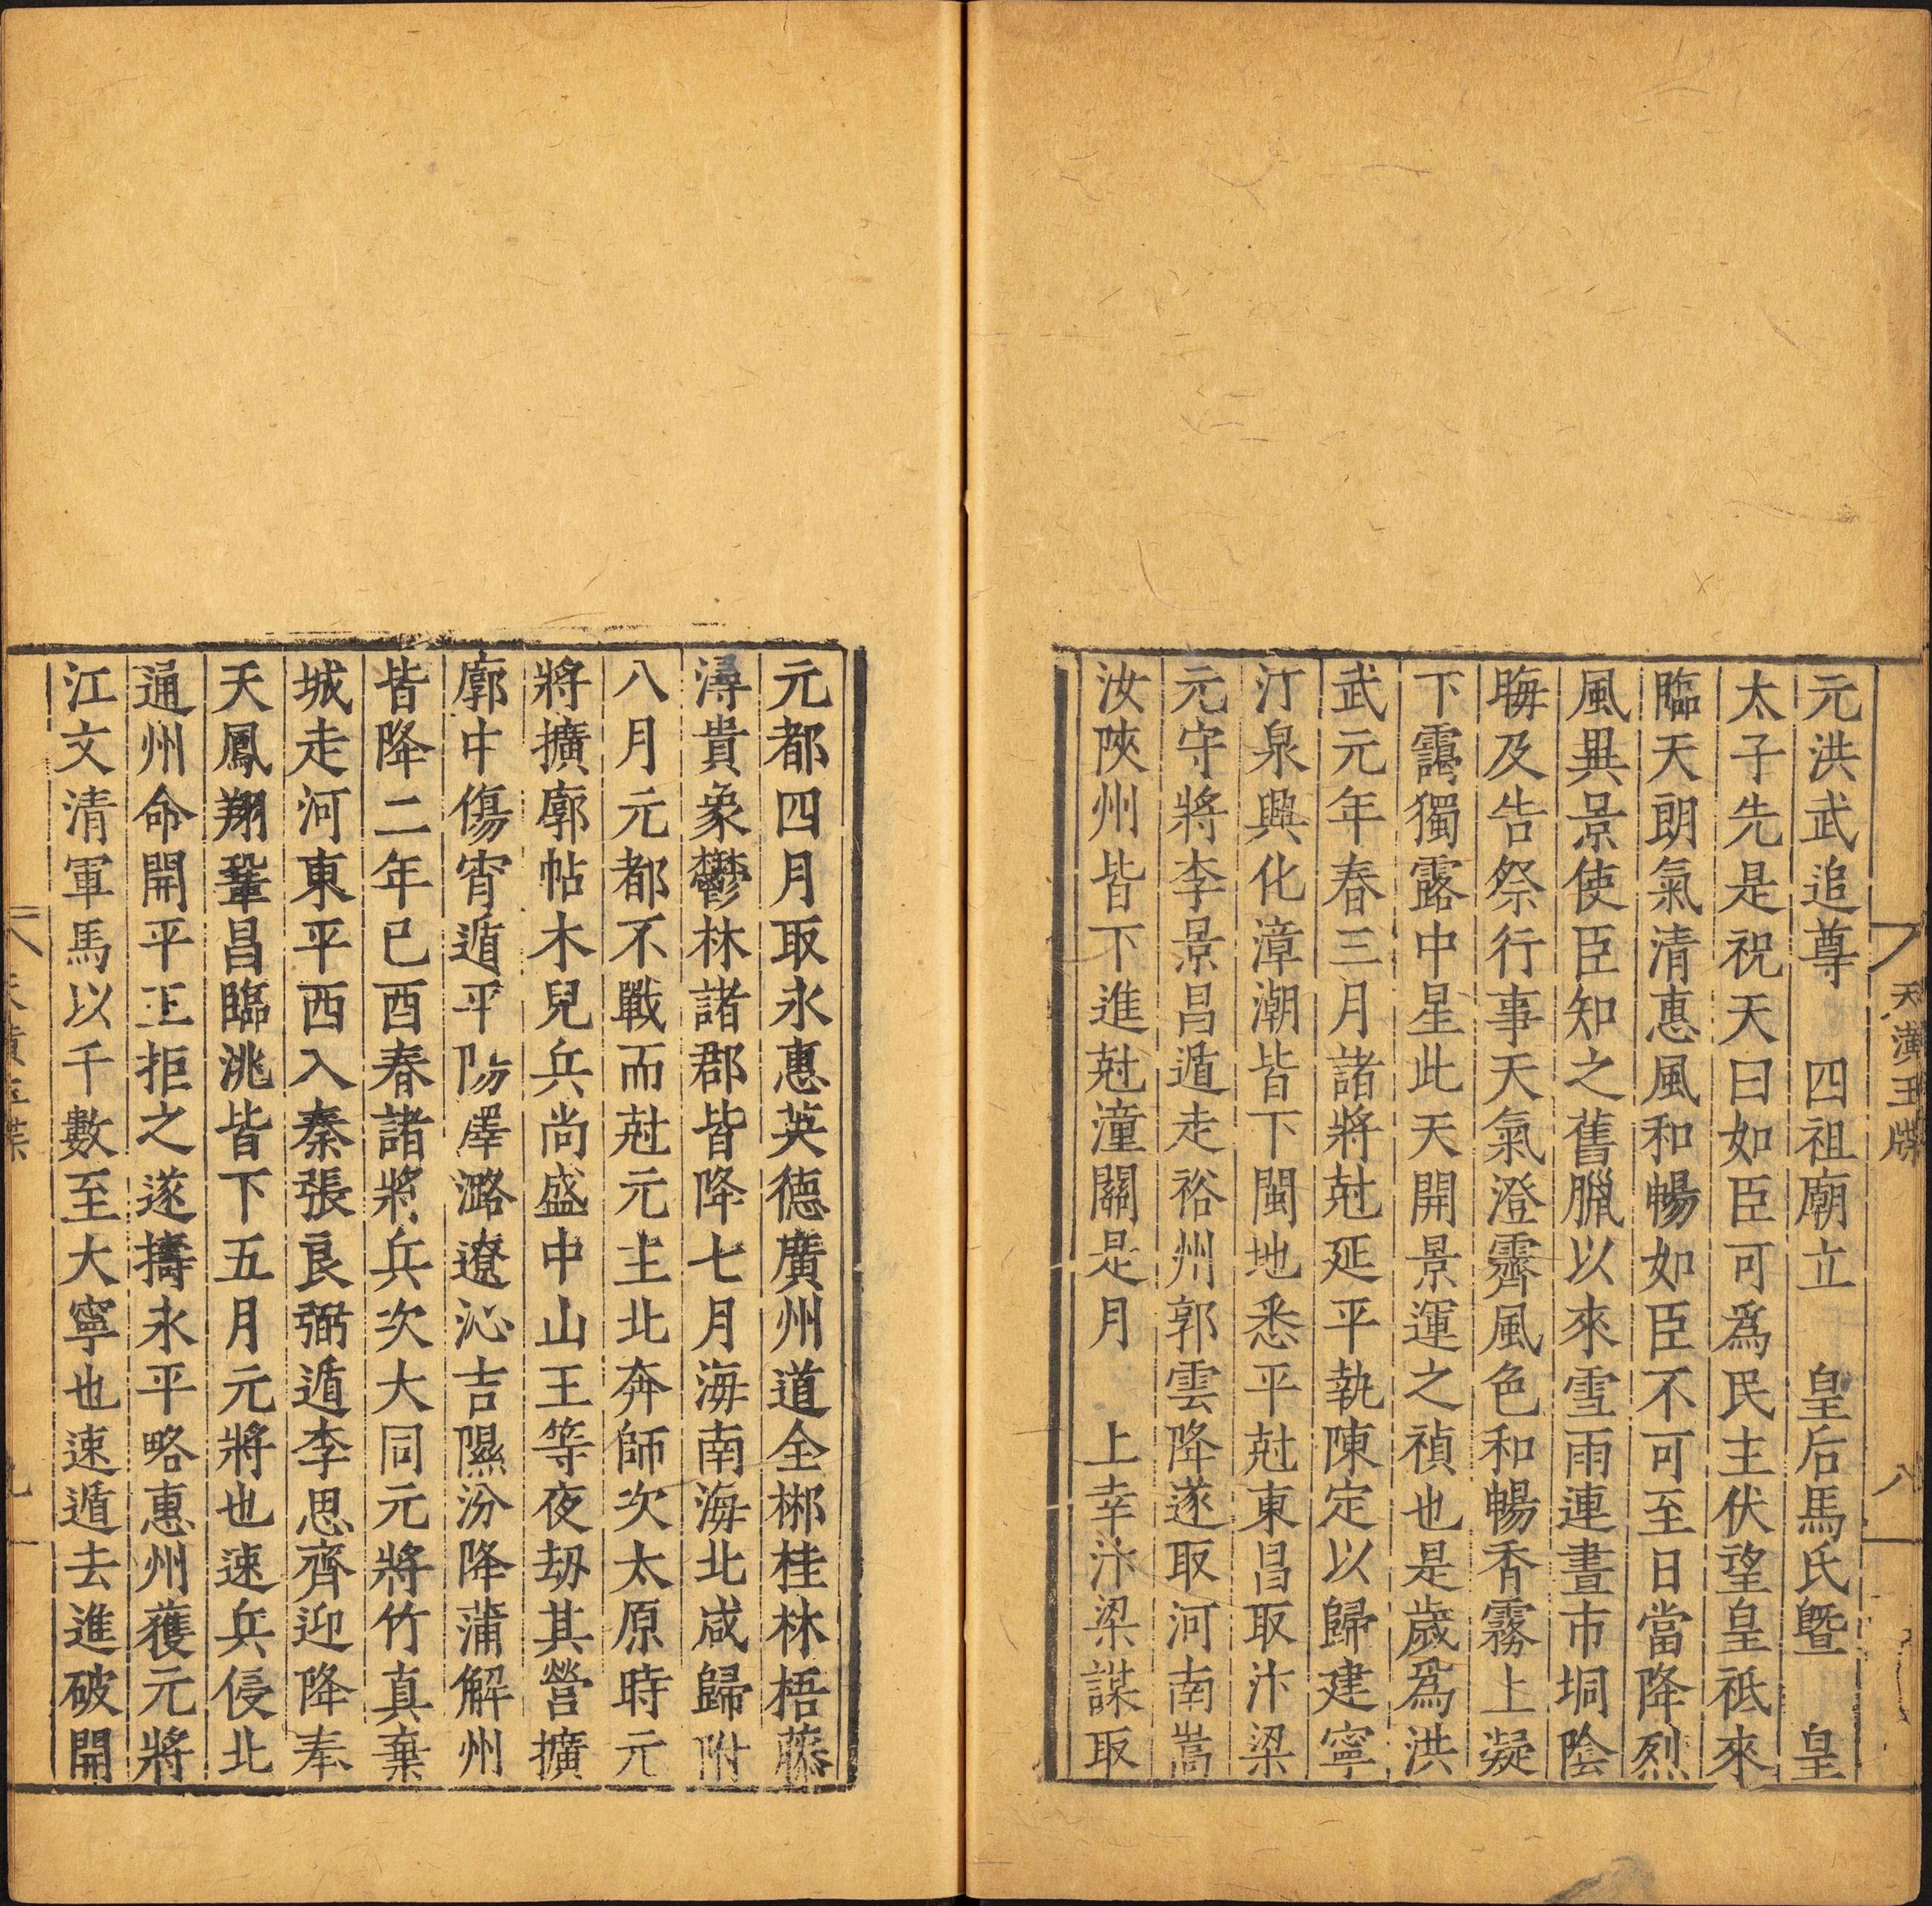 天潢玉牒
八
元洪武追尊　四祖廟立　皇后馬氏曁　皇
太子先是祝天曰如臣可爲民主伏望皇祗來
臨天朗氣清惠風和暢如臣不可至日當降烈
風異景使臣知之舊臘以來雪雨連晝市垌陰
晦及告祭行事天氣澄霽風色和暢香霧上凝
下靄獨露中星此天開景運之禎也是歲爲洪
武元年春三月諸將尅延平執陳定以歸建寧
汀泉興化漳潮皆下閩地悉平尅東昌取汴梁
元守將李景昌遁走裕州郭雲降遂取河南嵩
汝陝州皆下進尅潼關是月　上幸汴梁謀取
元都四月取永惠英德廣州道全郴桂林梧藤
潯貴象鬱林諸郡皆降七月海南海北咸歸附
八月元都不戰而尅元主北奔師次太原時元
將擴廓帖木兒兵尚盛中山王等夜刼其營擴
廓中傷宵遁平陽澤潞遼沁吉隰汾降蒲解州
皆降二年己酉春諸將兵次大同元將竹真棄
城走河東平西入秦張良弼遁李思齊迎降奉
天鳳翔鞏昌臨洮皆下五月元將也速兵侵北
通州命開平王拒之遂擣永平略惠州獲元將
江文清軍馬以千數至大寧也速遁去進破開
九